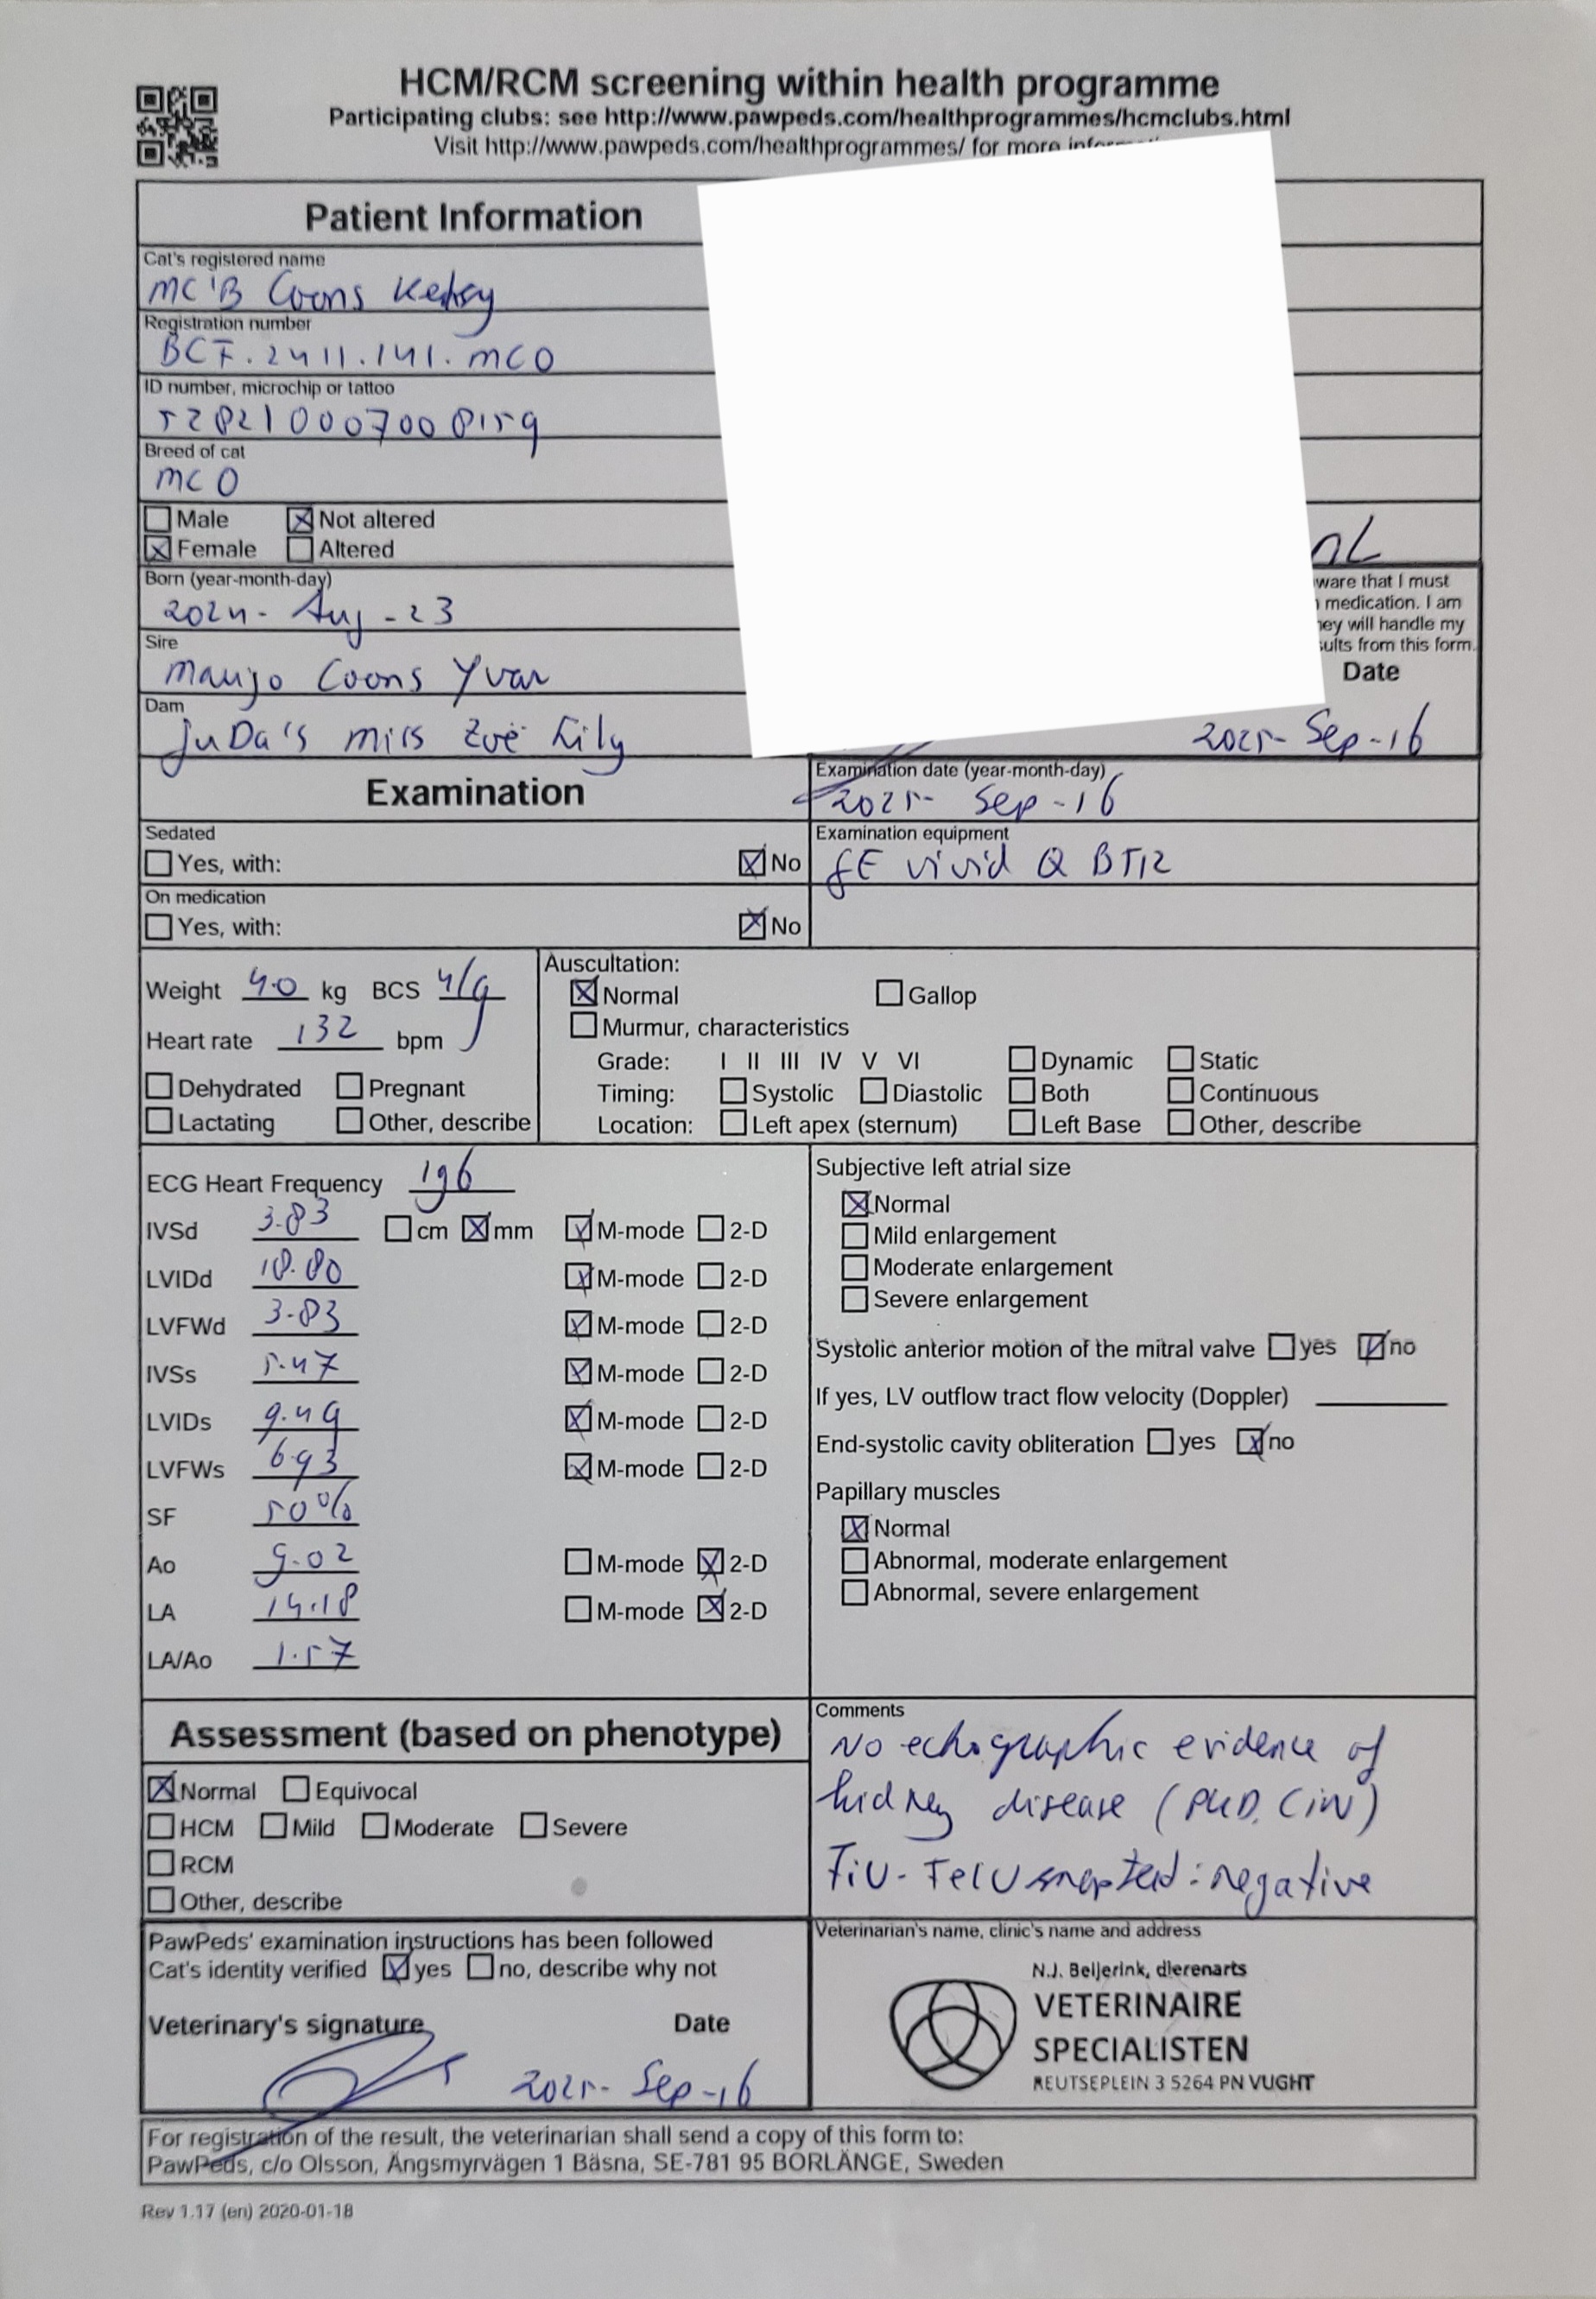 HCM/RCM screening within health programme
Participating clubs: see http://www.pawpeds.com/healthprogrammes/hcmclubs.html
Visit http://www.pawpeds.com/healthprogrammes/ for more
Patient Information
Cat's registered name
MC'B Coons
Registration number
BCF.2411.141.MCO
ID number, microchip or tattoo
528210007008159
Breed of cat
MCO
Male Not altered
Female Altered
NL
Born (year-month-day)
2024-Aug-23
ware that I must
medication. I am
ey will handle my
sults from this form.
Sire
Mango Coons Yvar
Date
Dam
JuDa's Miss Zoë Lily
2025-Sep-16
Examination
Examination date (year-month-day)
2025-Sep-16
Sedated
Yes, with: No
Examination equipment
GE vivid Q BT12
On medication
Yes, with: No
Weight 4.0 kg BCS 4/9
Heart rate 132 bpm
Dehydrated Pregnant
Lactating Other, describe
Auscultation:
Normal Gallop
Murmur, characteristics
Grade: I II III IV V VI Dynamic Static
Timing: Systolic Diastolic Both Continuous
Location: Left apex (sternum) Left Base Other, describe
ECG Heart Frequency 196
IVSd 3.83 cm mm M-mode 2-D
LVIDd 18.80 M-mode 2-D
LVFWd 3.83 M-mode 2-D
IVSs 5.47 M-mode 2-D
LVIDs 9.49 M-mode 2-D
LVFWs 6.93 M-mode 2-D
SF 50%
Ao 9.02 M-mode 2-D
LA 14.18 M-mode 2-D
LA/Ao 1.57
Subjective left atrial size
Normal
Mild enlargement
Moderate enlargement
Severe enlargement
Systolic anterior motion of the mitral valve yes no
If yes, LV outflow tract flow velocity (Doppler)
End-systolic cavity obliteration yes no
Papillary muscles
Normal
Abnormal, moderate enlargement
Abnormal, severe enlargement
Assessment (based on phenotype)
Normal Equivocal
HCM Mild Moderate Severe
RCM
Other, describe
Comments
No echographic evidence of
kidney disease (PKD, CIN)
FiV-FelV snaptest: negative
PawPeds' examination instructions has been followed
Cat's identity verified yes no, describe why not
Veterinary's signature Date
2025-Sep-16
Veterinarian's name, clinic's name and address
N.J. Beijerink, dierenarts
VETERINAIRE
SPECIALISTEN
REUTSEPLEIN 3 5264 PN VUGHT
For registration of the result, the veterinarian shall send a copy of this form to:
PawPeds, c/o Olsson, Ängsmyrvägen 1 Bäsna, SE-781 95 BORLÄNGE, Sweden
Rev 1.17 (en) 2020-01-18